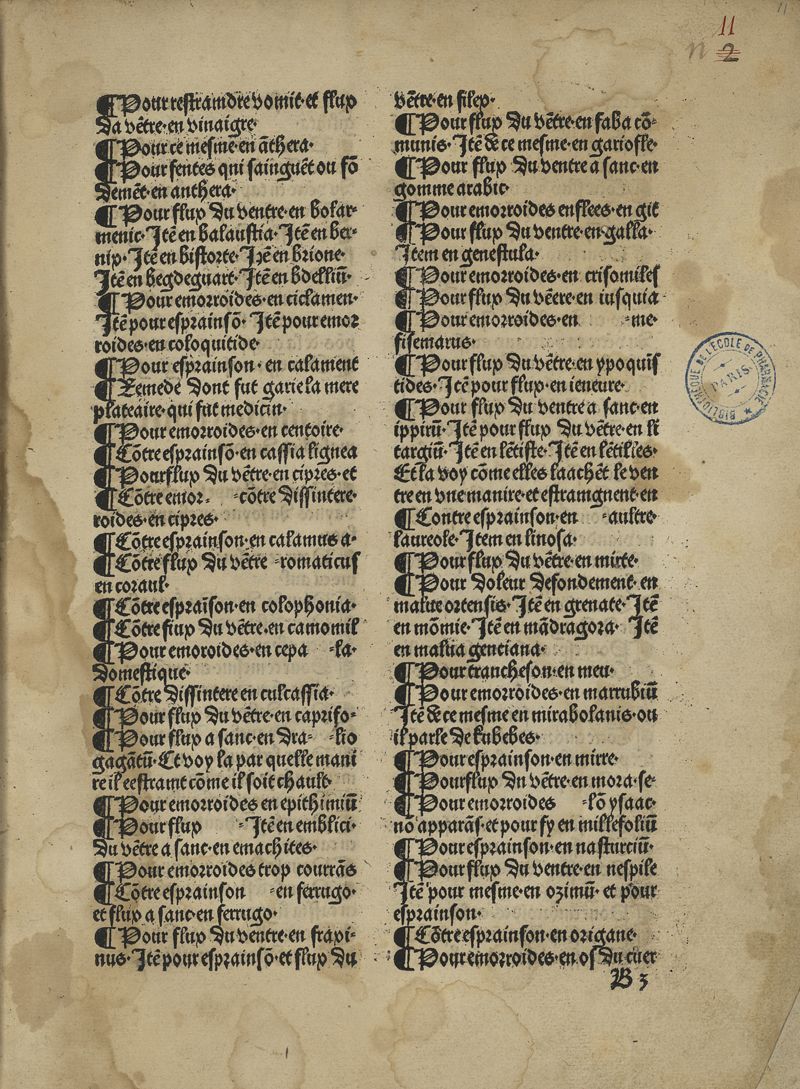 11
n 2
¶ Pour restraindre vomit·et flux
du vẽtre·en vinaigre·
¶ Pour ce mesme·en ãthera·
¶ Pour fentes qui sainguẽt ou fõ
demẽt·en anthera·
¶ Pour flux du ventre·en bolar-
menic·Itẽ en balaustia·Itẽ en ber-
nix·Itẽ en bistorte·Itẽ en brione·
Itẽ en begdeguart·Itẽ en bdelliũ·
¶ Pour emorroides·en ciclamen·
Itẽ pour esprainsõ· Itẽ pour emor
roides·en coloquitide·
¶ Pour esprainson· en calament
¶ Remede dont fut garie la mere
plateaire·qui fut medicin·
¶ Pour emorroides·en centoire·
¶ Cõtre esprainsõ·en cassia lignea
¶ Pour flux du vẽtre·en cipres·et
¶ Cõtre emor- -cõtre dissintere·
roides·en cipres·
¶ Cõtre esprainson·en calamus a·
¶ Cõtre flux du vẽtre -romaticus
en coraul·
¶ Cõtre espraĩson·en colophonia·
¶ Cõtre flux du vẽtre·en camomil
¶ Pour emoroides·en cepa -la·
domestique·
¶ Cõtre dissintere en culcassia·
¶ Pour flux du vẽtre·en caprifo-
¶ Pour flux a sanc·en dra- -lio
gagãtũ· Et voy la par quelle mani
re il eestramt cõme il soit chault·
¶ Pour emorroides en epithimiũ
¶ Pour flux -Itẽ en emblici·
du vẽtre a sanc·en emachites·
¶ Pour emorroides trop courrãs
¶ Cõtre esprainson -en ferrugo·
et flux a sanc·en ferrugo·
¶ Pour flux du ventre·en fraxi-
nus· Itẽ pour esprainsõ·et flux du
vẽtre·en filex·
¶ Pour flux du vẽtre·en faba cõ-
munis· Itẽ de ce mesme·en gariofle·
¶ Pour flux du ventre a sanc·en
gomme arabic·
¶ Pour emorroides enflees·en git
¶ Pour flux du ventre·en galla·
Item en genestula·
¶ Pour emorroides·en crisomiles
¶ Pour flux du vẽere·en iusquia·
¶ Pour emorroides·en -me·
sisemarus·
¶ Pour flux du vẽtre·en ypoquĩs
tides· Itẽ pour flux·en ieneure·
¶ Pour flux du ventre a sanc·en
ippirũ· Itẽ pour flux du vẽtre·en li
targiũ· Itẽ en lẽtiste· Itẽ en lẽtilles·
Et la voy cõme elles laachẽt le ven
tre en vne manire·et estramgnent·en
¶ Contre esprainson·en -aultre·
laureole· Item en linosa·
¶ Pour flux du vẽtre·en mirte·
¶ Pour doleur defondement·en
malue ortensis· Itẽ en grenate· Itẽ
en mõmie· Itẽ en mãdragora· Itẽ
en maltia gentiana·
¶ Pour trancheson·en meu·
¶ Pour emorroides·en marrubiũ
Itẽ de ce mesme en mirabolanis·ou
il parle de kubebes·
¶ Pour esprainson·en mirre·
¶ Pour flux du vẽtre·en mora·se·
¶ Pour emorroides -lõ ysaac·
nõ apparãs·et pour fy en millefoliũ
¶ Pour esprainson·en nasturciũ·
¶ Pour flux du ventre·en nespile
Itẽ pour mesme·en ozimũ· et pour
esprainson·
¶ Cõtre esprainson·en origane·
¶ Pour emorroides·en os du cuer
B 3
BIBLIOTHEQUE DE L'ECOLE DE PHARMACIE
PARIS